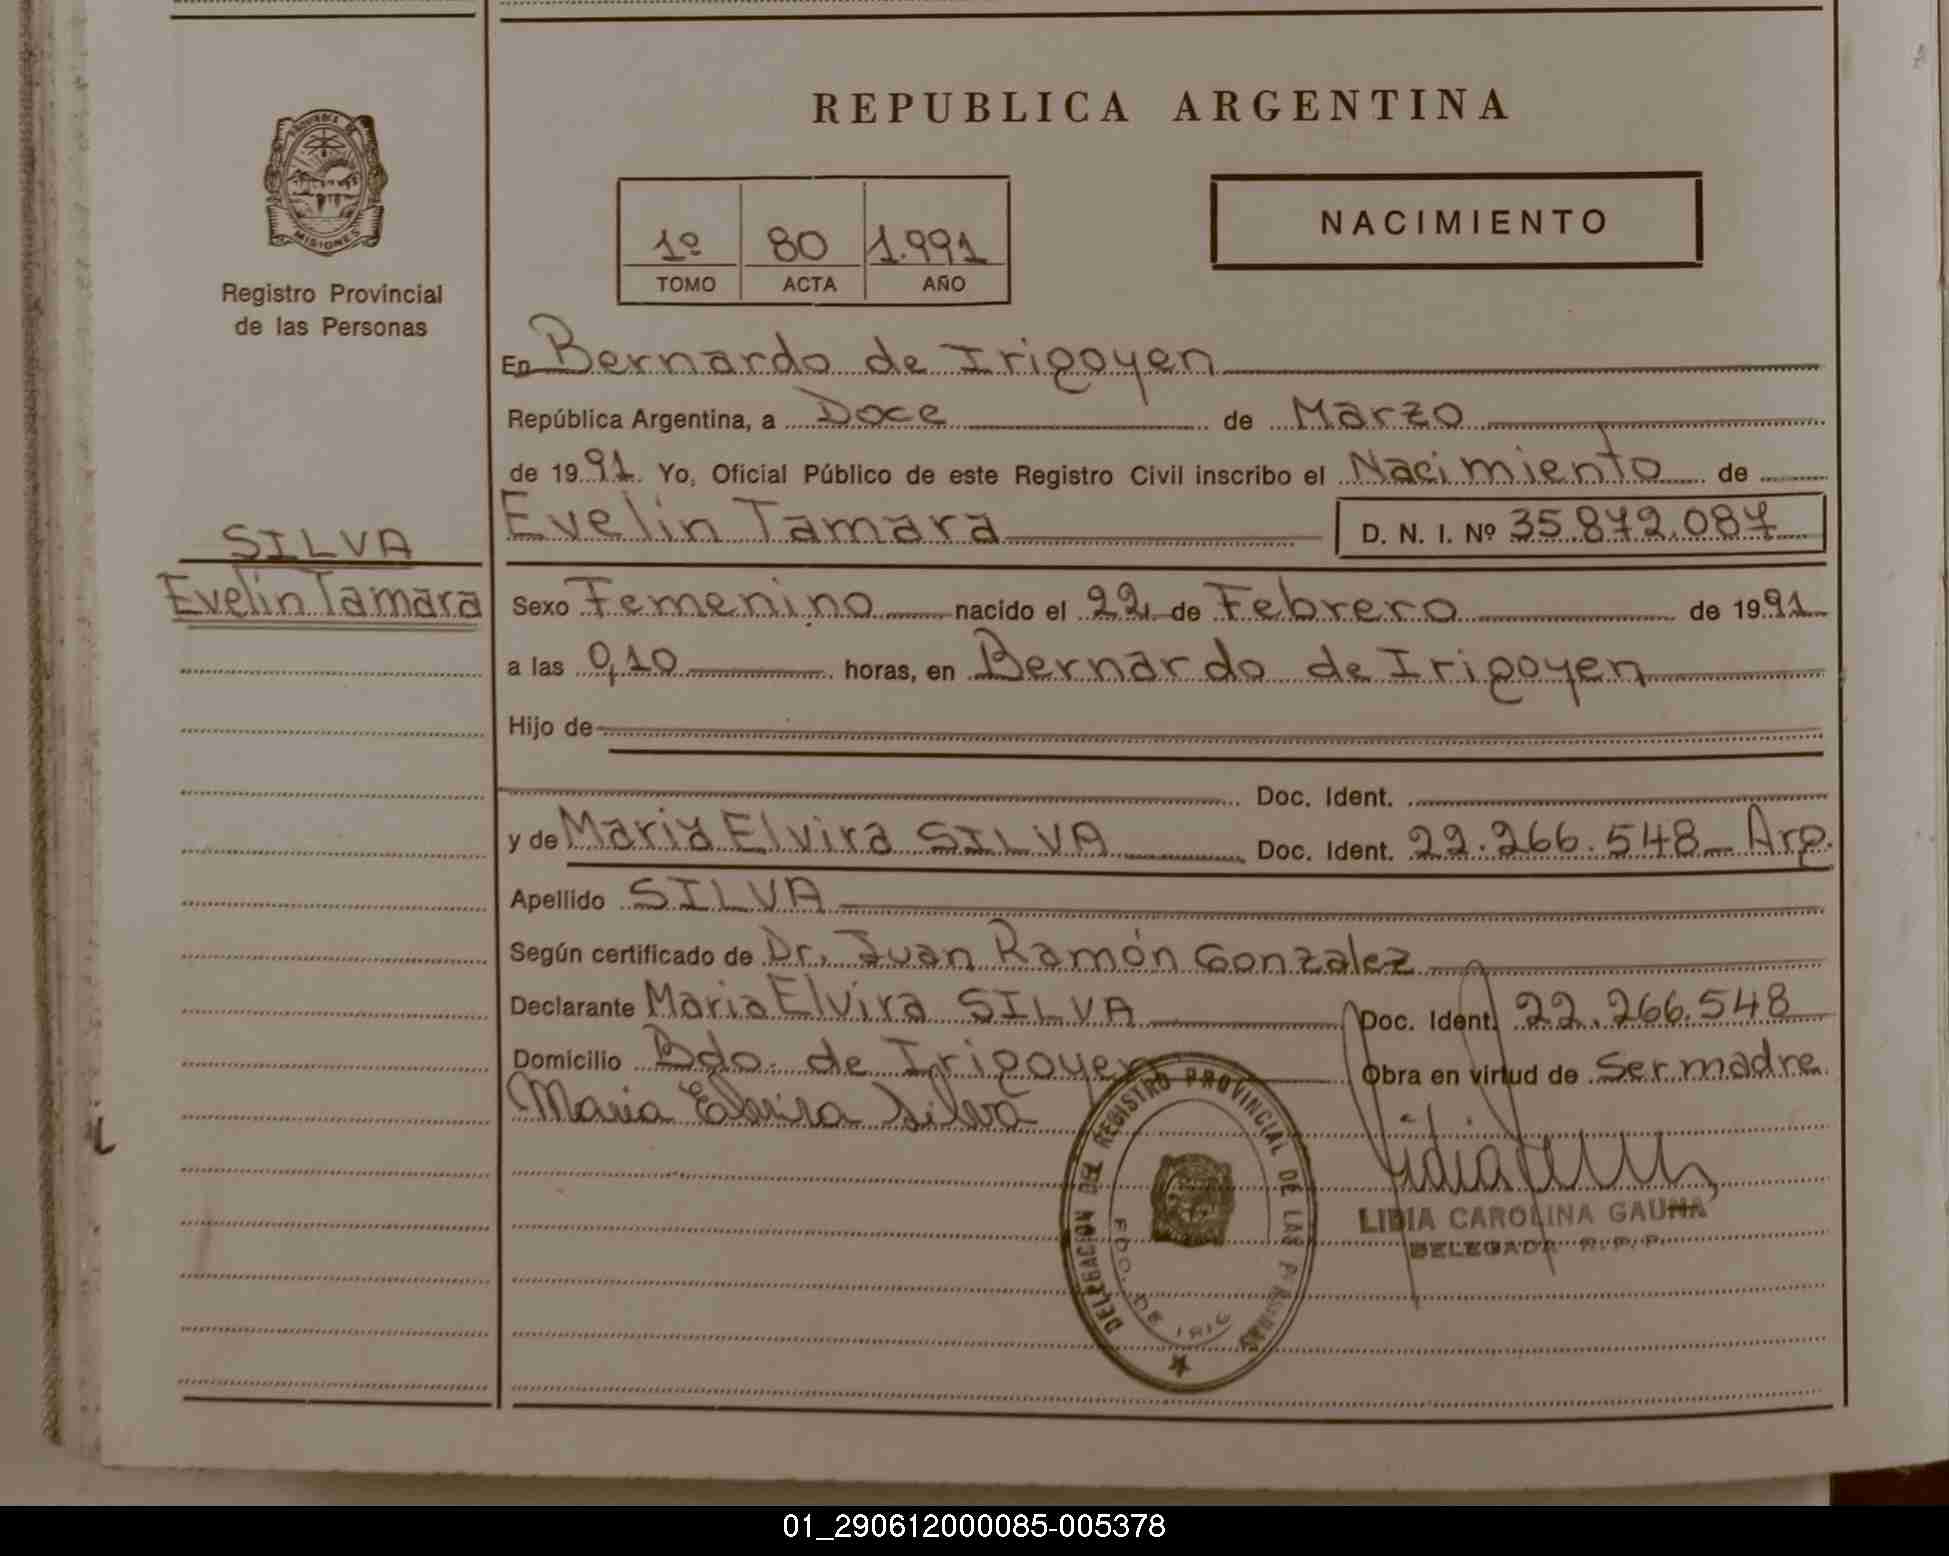 REPUBLICA ARGENTINA
PROVINCIA DE
MISIONES
Registro Provincial
de las Personas
1º 80 1.991
TOMO ACTA AÑO
NACIMIENTO
En Bernardo de Irigoyen
República Argentina, a Doce de Marzo
de 1991 Yo, Oficial Público de este Registro Civil inscribo el Nacimiento de
Evelin Tamara D. N. I. Nº 35.872.087
SILVA
Evelin Tamara
Sexo Femenino nacido el 22 de Febrero de 1991
a las 0,10 horas, en Bernardo de Irigoyen
Hijo de
Doc. Ident.
y de Maria Elvira SILVA Doc. Ident. 22.266.548 Arg.
Apellido SILVA
Según certificado de Dr. Juan Ramón Gonzalez
Declarante Maria Elvira SILVA Doc. Ident. 22.266.548
Domicilio Bdo. de Irigoyen Obra en virtud de Ser madre
Maria Elvira Silva
DELEGACION DEL REGISTRO PROVINCIAL DE LAS PERSONAS
BDO. DE IRIG
LIDIA CAROLINA GAUNA
DELEGADA R.P.P.
01_290612000085-005378